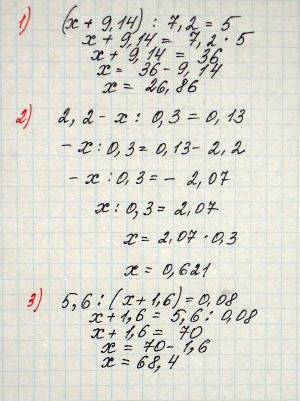 1) (x + 9,14) : 7,2 = 5
x + 9,14 = 7,2 · 5
x + 9,14 = 36
x = 36 - 9,14
x = 26,86
2) 2,2 - x : 0,3 = 0,13
- x : 0,3 = 0,13 - 2,2
- x : 0,3 = - 2,07
x : 0,3 = 2,07
x = 2,07 · 0,3
x = 0,621
3) 5,6 : (x + 1,6) = 0,08
x + 1,6 = 5,6 : 0,08
x + 1,6 = 70
x = 70 - 1,6
x = 68,4